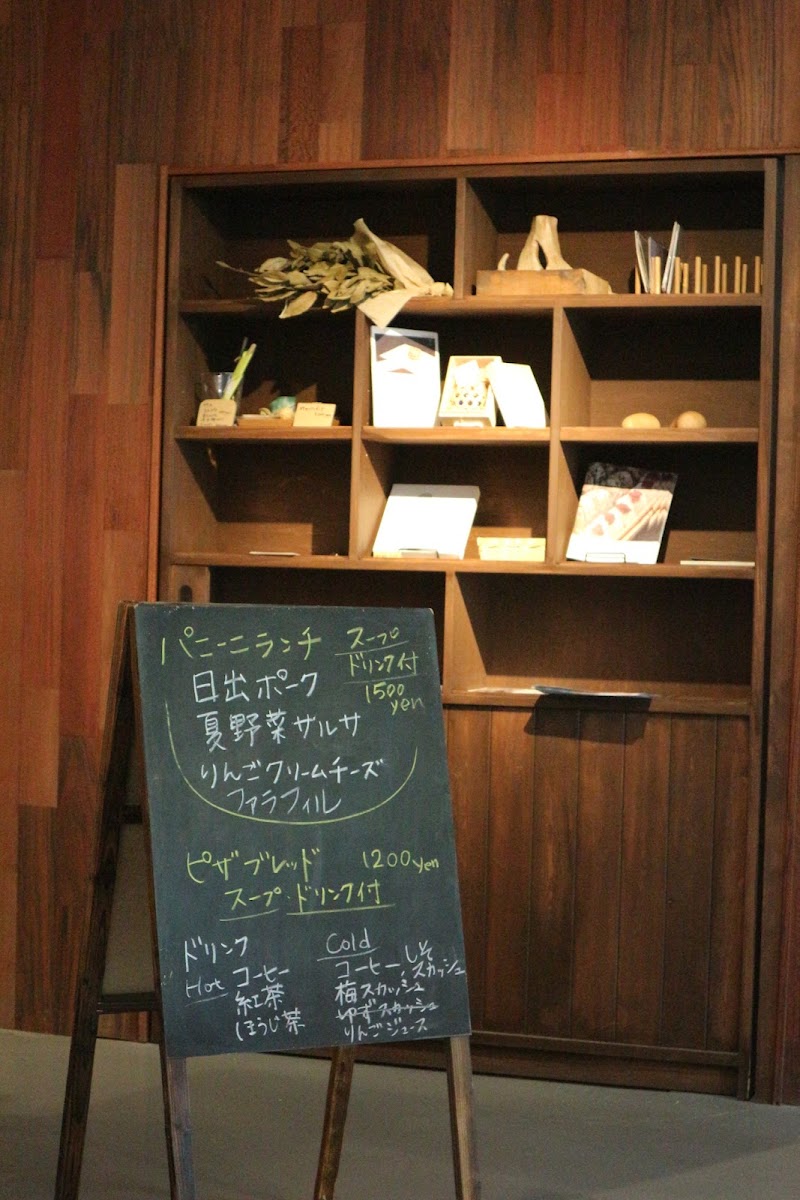 パニーニランチ
スープ
ドリンク付
1500
yen
日出ポーク
夏野菜サルサ
りんごクリームチーズ
ファラフィル
ピザブレッド 1200yen
スープ・ドリンク付
ドリンク
Hot コーヒー
紅茶
ほうじ茶
Cold
コーヒー、しそスカッシュ
梅スカッシュ
ゆずスカッシュ
りんごジュース